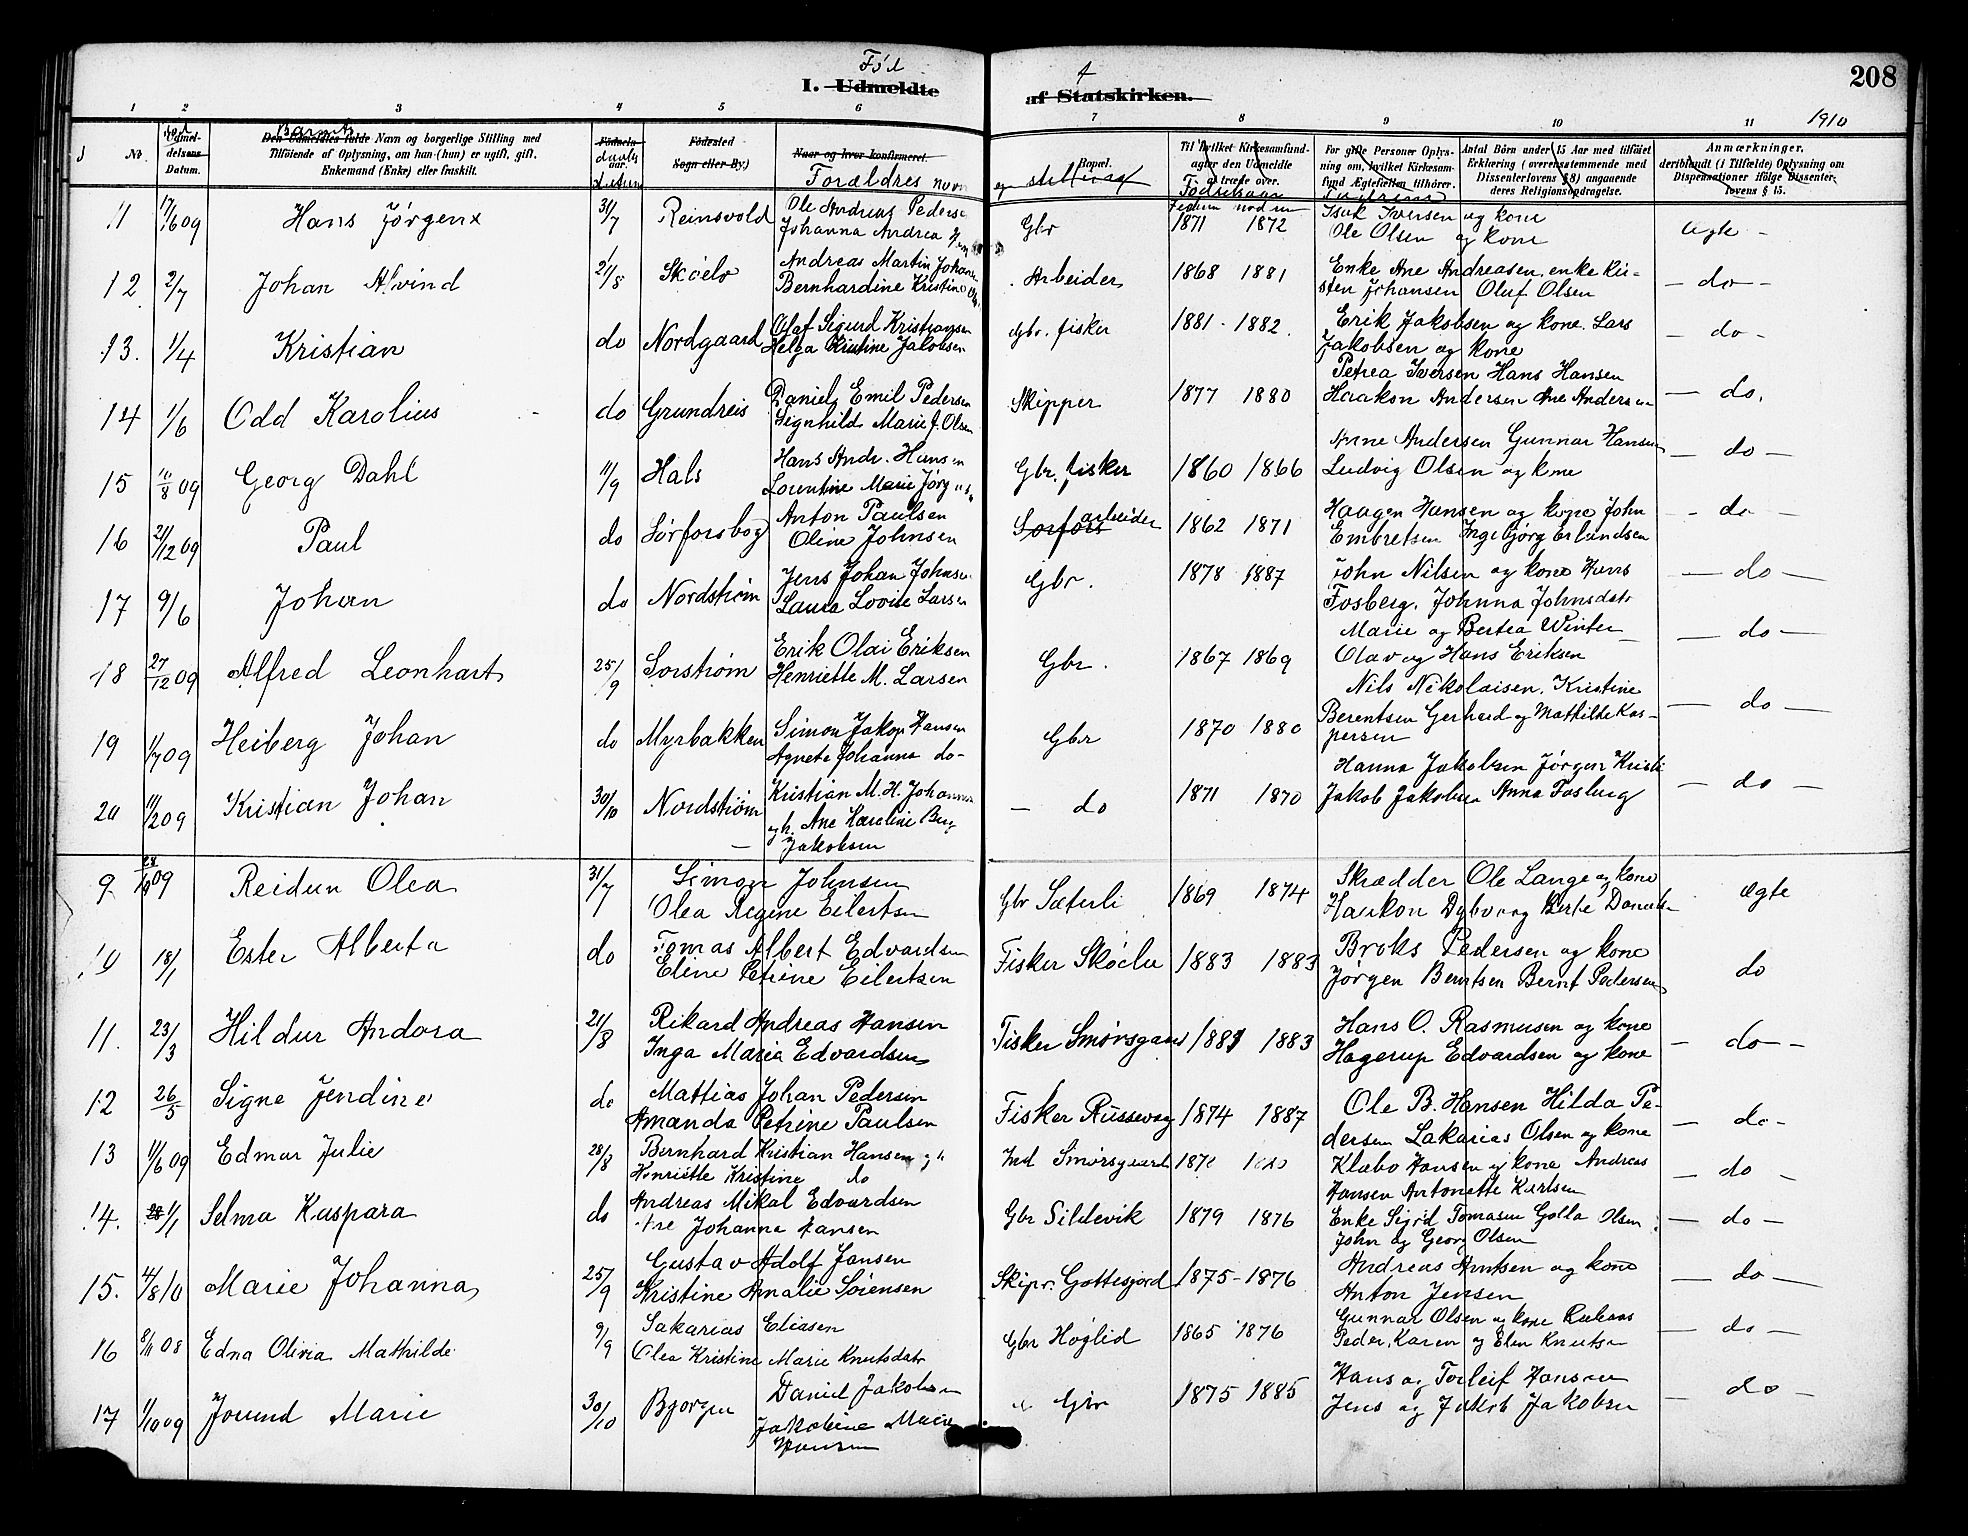 208
Fød
I. Udmeldte af Statskirken.
1910
1 2 3 4 5 6 7 8 9 10 11
No. Udmel-
delsens
Datum.
Barnets
Den Udmeldtes fulde Navn og borgerlige Stilling med
Tilføiende af Oplysning, om han (hun) er ugift, gift,
Enkemand (Enke) eller fraskilt.
Fødsels-
aar.
daabs
datum
Fødested
Sogn eller By.)
Naar og hvor konfirmeret.
Forældres navn
Bopæl.
og stilling af
Til hvilket Kirkesamfund
agter den Udmeldte
at træde over.
Fødselsaar
For gifte Personer Oplys-
ning om, hvilket Kirkesam-
fund Ægtefællen tilhører.
Antal Børn under 15 Aar med tilføiet
Erklæring (overensstemmende med
Dissenterlovens § 8) angaaende
deres Religionsopdragelse.
Anmærkninger,
deriblandt (i Tilfælde) Oplysning om
Dispensationer ifølge Dissenter-
lovens § 15.
11 17/6 09 Hans Jørgen 31/7 Reinsvold Ole Andreas Pederse
Johanna Andrea
Gbr 1871 1872 Isak Iversen og kone
Ole Olsen og kone
ægte -
12 2/7 Johan Alvind 21/8 Skøelv Andreas Martin Johans
Bernhardine Kristine
Arbeider 1868 1881 Enke Ane Andreasen, enke Kir-
sten Johansen Oluf Olsen
- do -
13. 1/4 Kristian do Nordgaard Olaf Sigurd Kristiansen
Helga Kristine Jakobsen
Gbr. fisker 1881 - 1882. Erik Jakobsen og kone. Lars
Jakobsen og kone
- do -
14 1/6 Odd Karolius do Grundreis Daniel Emil Pedersen
Signhild Marie J. Olsen
Skipper 1877 1880 Petrea Iversen Hans Hansen
Haakon Andersen Ane Andersen
- do.
15 11/8 09 Georg Dahl 11/9 Hals Hans Andr. Hansen
Lorentine Marie Jørg
Gbr. fisker 1860 1866 Anne Andersen Gunnar Hansen
Ludvig Olsen og kone
- do -
16 21/12 09 Paul do Sørforsbog Anton Paulsen
Oline Johnsen
Sorfors arbeider 1862 1871 Haagen Hansen og kone John
Embretsen Ingebjørg Erlandsen
- do -
17 9/6 Johan do Nordstrøm Jens Johan Johnse
Laura Lovise Larsen
Gbr. 1878 1887 John Nilsen og kone Hans
Fosberg. Johnna Johnsdatr
- do -
18 27/12 09 Alfred Leonhart 25/9 Sorstrøm Erik Olai Eriksen
Henriette M. Larsen
Gbr. 1867 1869 Marie og Bertea Winter
Olav og Hans Eriksen
- do -
19 1/7 09 Heiberg Johan do Myrbakken Simon Jakop Hansen
Agnete Johanna do-
Gbr 1870 1880 Nils Nikolaisen. Kristine
Berentsen Gerhard og Mathilde Kas-
persen
- do -
20 11/12 09 Kristian Johan 30/10 Nordstrøm Kristian M. H. Johansen
og h. Ane Karoline Berg
Jakobsen
- do 1871 1870 Hanna Jakobsen Jørgen Kristi
Jakob Jakobsen Anna Fosberg
- do -
9 28/10 09 Reidun Olea 31/7 Simon Johnsen
Olea Regine Eilertsen
Gbr Sæterli 1869 1874 Skrædder Ole Lange og kone
Haakon Dybvaag Berte
ægte
10 18/1 Ester Alberta do Tomas Albert Edvardsen
Eline Petrine Eilertsen
Fisker Skøelv 1883 1883 Broks Pedersen og kone
Jørgen Berntsen Bernt Pedersen
do
11. 23/3 Hildur Andora 21/8 Rikard Andreas Hansen
Inga Maria Edvardsen
Fisker Smørsgaard 1881 1883 Hans O. Rasmusen og kone
Hagerup Edvardsen og kone
- do -
12 26/5 Signe Jendine do Mattias Johan Pedersen
Amanda Petrine Paulsen
Fisker Russevaag 1874 1887 Ole B. Hansen Hilda Pe-
dersen Sakarias Olsen og kone
- do -
13 11/6 09 Edmar Julie 28/8 Bernhard Kristian Hansen
Henriette Kristine do
Ind Smørsgaard Klæbo Hansen og kone Andreas
Hansen Antonette Karlsen
- do
14. 1/1 Selma Kaspara do Andreas Mikal Edvardsen
Johanna Hansen
Gbr Sildevik 1879 1876 Enke Sigrd Tomasen Golla Olsen
John og Georg Olsen
- do -
15. 4/8 10 Marie Johanna 25/9 Gustav Adolf Jansen
Kristine Amalie Sørensen
Skipr. Gottesjord 1875 - 1876 Andreas Arntsen og kone
Anton Jensen
- do -
16 8/11 08 Edna Olivia Mathilde 9/9 Sakarias Eliasen
Olea Kristine Marie Knutsdatr
Gbr Høglid 1865 1876 Gunnar Olsen og kone
Peder, Karen og Elen Knutsen
- do -
17 1/10 09 Jorund Marie 30/10 Bjorgen Daniel Jakobsen
Jakobine Marie
Hansen
Gbr 1875 1885 Hans og Torleif Hansen
Jens og Jakob Jakobsen
- do -